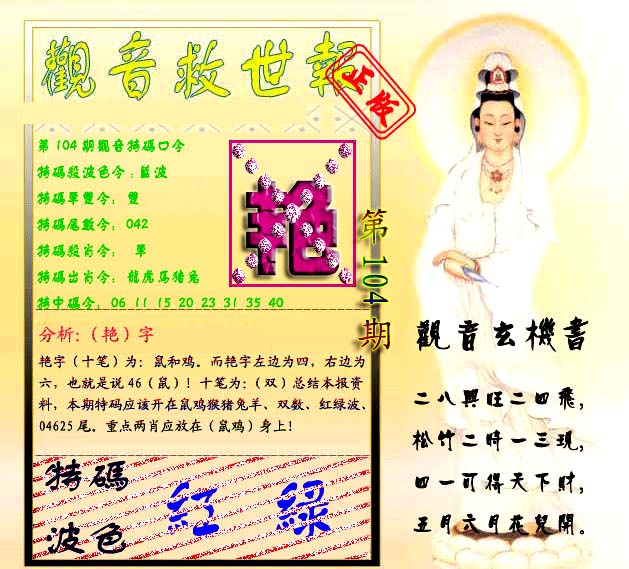 觀音救世報
正版
第104期觀音特碼口令
特碼殺波色令:藍波
特碼單雙令: 雙
特碼尾數令: 042
特碼殺肖令: 單
特碼出肖令: 龍虎馬猪兔
特中碼令: 06 11 15 20 23 31 35 40
艳
第104期
分析:(艳)字
艳字(十笔)为: 鼠和鸡。而艳字左边为四, 右边为
六, 也就是说46(鼠)! 十笔为:(双)总结本报资
料, 本期特码应该开在鼠鸡猴猪兔羊、双数、红绿波、
04625尾。重点两肖应放在(鼠鸡)身上!
特碼
波色
紅 綠
觀音玄機書
二八興旺二四飛,
松竹二時一三現,
四一可得天下財,
五月六月花兒開。